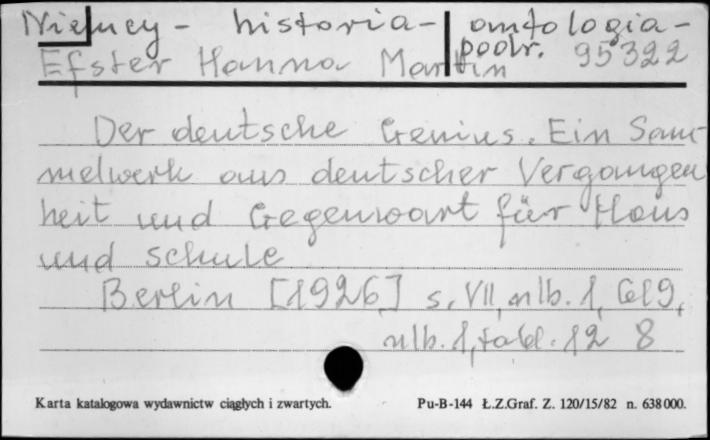 Niemcy - historia - antologia -
podr. 95322
Efster Hanna Martin
Der deutsche Genius. Ein Sam-
melwerk aus deutscher Vergangen
heit und Gegenwart für Haus
und Schule
Berlin [1926] s. VII, nlb. 1, 619,
nlb. 1, tabl. 12 8
Karta katalogowa wydawnictw ciągłych i zwartych.
Pu-B-144 Ł.Z.Graf. Z. 120/15/82 n. 638000.